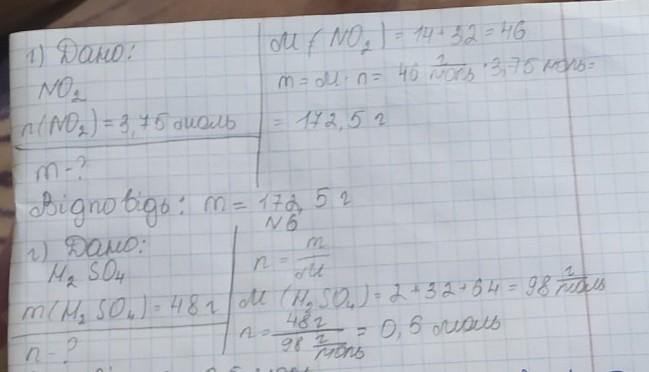 г) Дано:
NO₂
n(NO₂) = 3,75 моль
m - ?
M(NO₂) = 14 + 32 = 46
m = M · n = 46 г/моль · 3,75 моль =
= 172,5 г
Відповідь: m = 172,5 г
N6
г) Дано:
H₂SO₄
m(H₂SO₄) = 48 г
n - ?
n = m/M
M(H₂SO₄) = 2 + 32 + 64 = 98 г/моль
n = 48 г / 98 г/моль = 0,5 моль